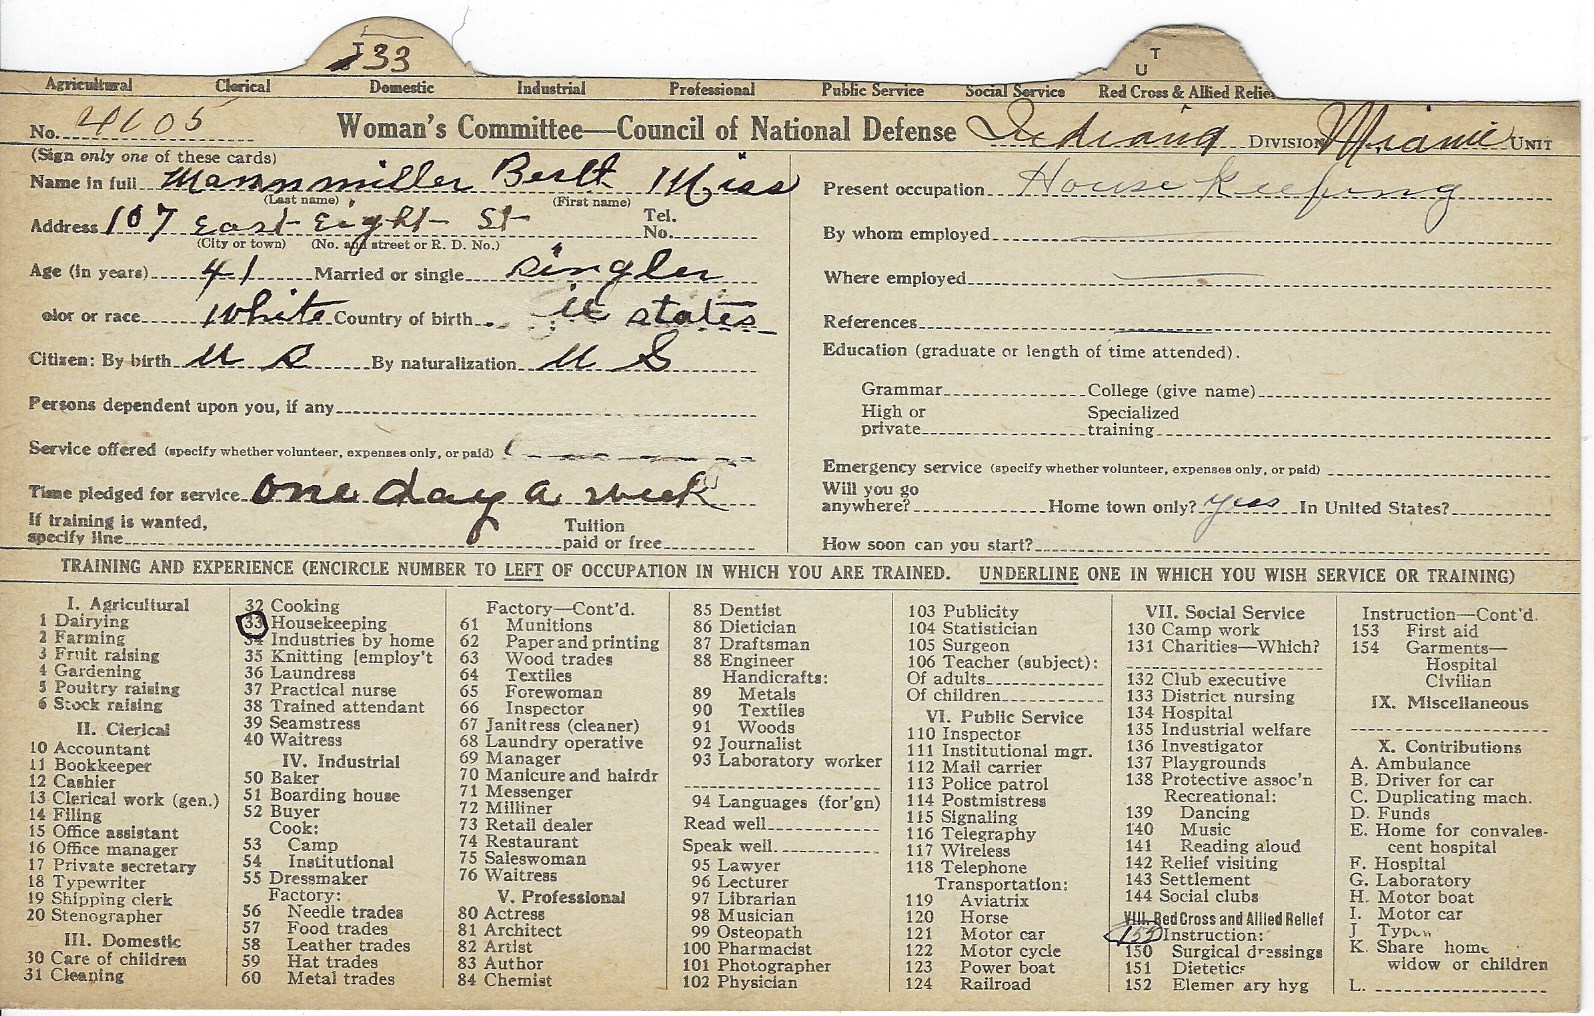 I 33
T
U
Agricultural Clerical Domestic Industrial Professional Public Service Social Service Red Cross & Allied Relie
No. 4105 Woman's Committee—Council of National Defense Indiana DIVISION Miami UNIT
(Sign only one of these cards)
Name in full Mannmiller Berlt Miss
(Last name) (First name)
Address 107 East Eight St Tel. No.
(City or town) (No. and street or R. D. No.)
Age (in years) 41 Married or single singler
olor or race White Country of birth U states
Citizen: By birth U S By naturalization U S
Persons dependent upon you, if any
Service offered (specify whether volunteer, expenses only, or paid)
Time pledged for service one day a week
If training is wanted, specify line Tuition paid or free
Present occupation House Keeping
By whom employed
Where employed
References
Education (graduate or length of time attended).
Grammar College (give name)
High or private Specialized training
Emergency service (specify whether volunteer, expenses only, or paid)
Will you go anywhere? Home town only? yess In United States?
How soon can you start?
TRAINING AND EXPERIENCE (ENCIRCLE NUMBER TO LEFT OF OCCUPATION IN WHICH YOU ARE TRAINED. UNDERLINE ONE IN WHICH YOU WISH SERVICE OR TRAINING)
I. Agricultural
1 Dairying
2 Farming
3 Fruit raising
4 Gardening
5 Poultry raising
6 Stock raising
II. Clerical
10 Accountant
11 Bookkeeper
12 Cashier
13 Clerical work (gen.)
14 Filing
15 Office assistant
16 Office manager
17 Private secretary
18 Typewriter
19 Shipping clerk
20 Stenographer
III. Domestic
30 Care of children
31 Cleaning
32 Cooking
33 Housekeeping
34 Industries by home
35 Knitting [employ't
36 Laundress
37 Practical nurse
38 Trained attendant
39 Seamstress
40 Waitress
IV. Industrial
50 Baker
51 Boarding house
52 Buyer
Cook:
53 Camp
54 Institutional
55 Dressmaker
Factory:
56 Needle trades
57 Food trades
58 Leather trades
59 Hat trades
60 Metal trades
Factory—Cont'd.
61 Munitions
62 Paper and printing
63 Wood trades
64 Textiles
65 Forewoman
66 Inspector
67 Janitress (cleaner)
68 Laundry operative
69 Manager
70 Manicure and hairdr
71 Messenger
72 Milliner
73 Retail dealer
74 Restaurant
75 Saleswoman
76 Waitress
V. Professional
80 Actress
81 Architect
82 Artist
83 Author
84 Chemist
85 Dentist
86 Dietician
87 Draftsman
88 Engineer
Handicrafts:
89 Metals
90 Textiles
91 Woods
92 Journalist
93 Laboratory worker
94 Languages (for'gn)
Read well
Speak well
95 Lawyer
96 Lecturer
97 Librarian
98 Musician
99 Osteopath
100 Pharmacist
101 Photographer
102 Physician
103 Publicity
104 Statistician
105 Surgeon
106 Teacher (subject):
Of adults
Of children
VI. Public Service
110 Inspector
111 Institutional mgr.
112 Mail carrier
113 Police patrol
114 Postmistress
115 Signaling
116 Telegraphy
117 Wireless
118 Telephone
Transportation:
119 Aviatrix
120 Horse
121 Motor car
122 Motor cycle
123 Power boat
124 Railroad
VII. Social Service
130 Camp work
131 Charities—Which?
132 Club executive
133 District nursing
134 Hospital
135 Industrial welfare
136 Investigator
137 Playgrounds
138 Protective assoc'n
Recreational:
139 Dancing
140 Music
141 Reading aloud
142 Relief visiting
143 Settlement
144 Social clubs
VIII. Red Cross and Allied Relief
155 Instruction:
150 Surgical dressings
151 Dietetics
152 Elemer ary hyg
Instruction—Cont'd.
153 First aid
154 Garments—
Hospital
Civilian
IX. Miscellaneous
X. Contributions
A. Ambulance
B. Driver for car
C. Duplicating mach.
D. Funds
E. Home for convales-
cent hospital
F. Hospital
G. Laboratory
H. Motor boat
I. Motor car
J Typew
K. Share home
widow or children
L.